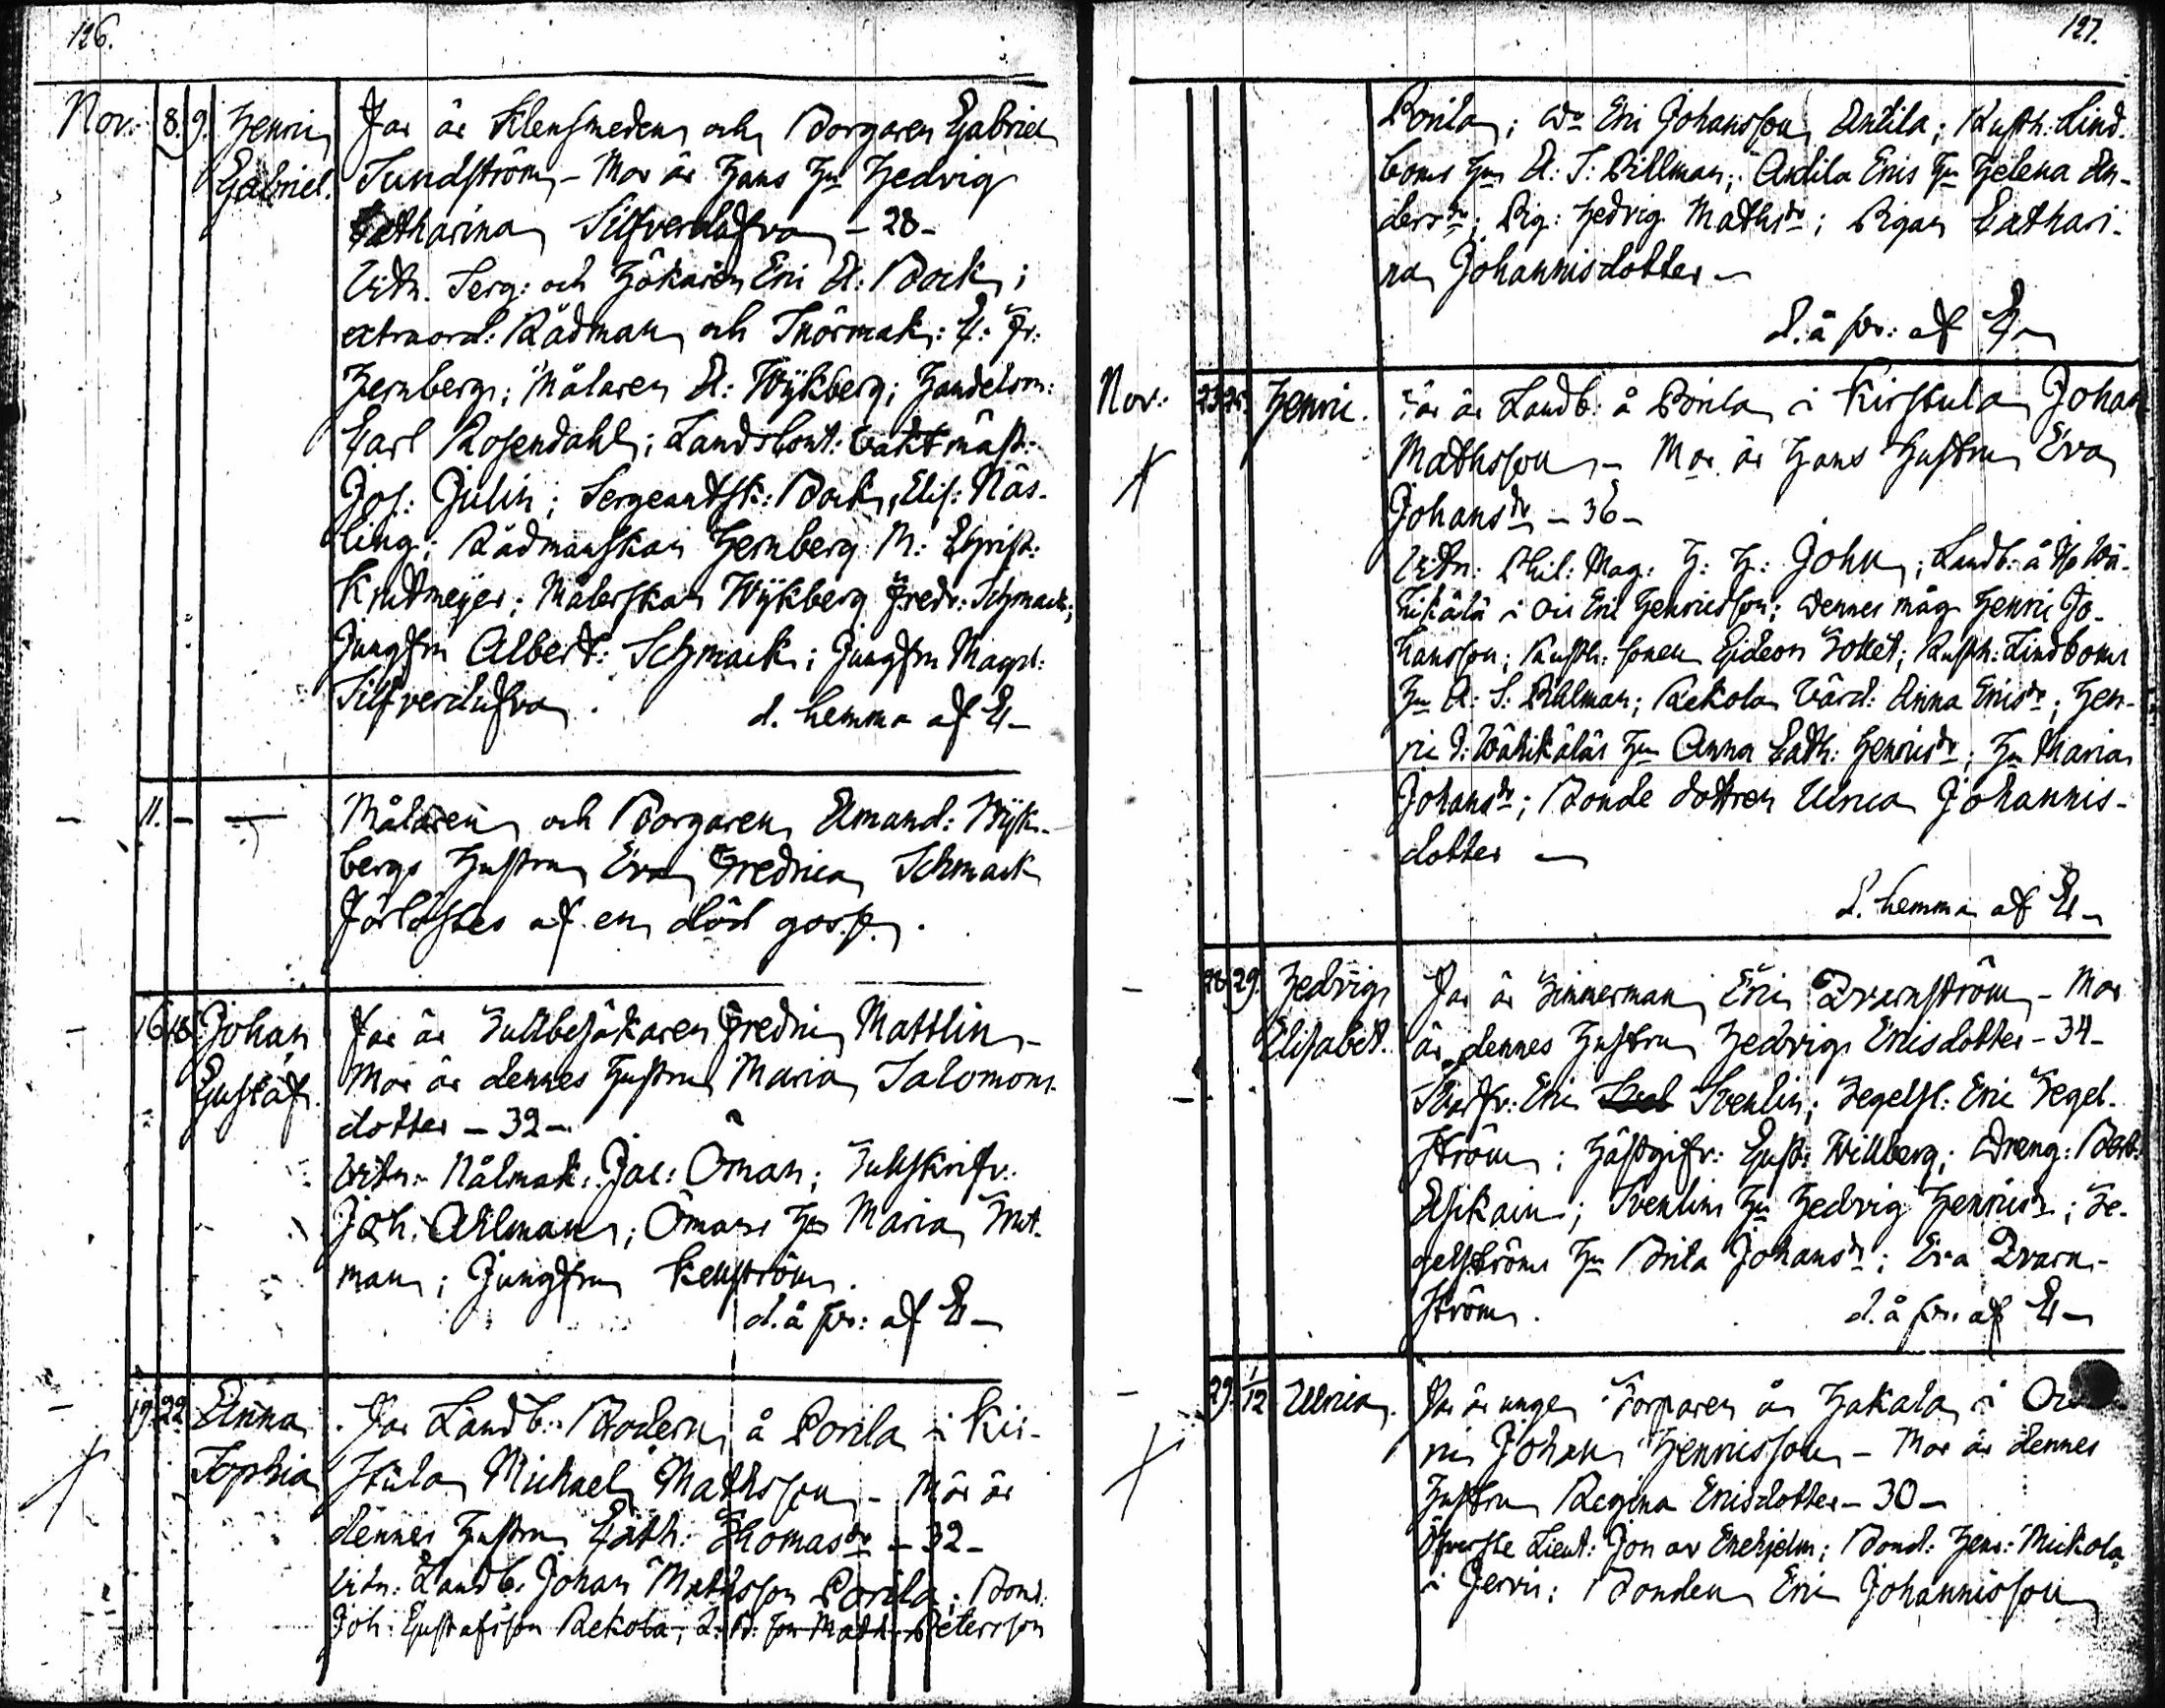 126.
Nov. 8. 9. Henric Far är Klensmeden och Borgaren Gabriel
Gabriel. Sundström - Mor är Hans Hu Hedvig
Catharina Silfverdufva - 28 -
Vitn. Serg: och Hökaren Eric A: Bock;
extraord: Rådman och Snörmak: C: Fr:
Hernberg; Målaren A: Wÿkberg; Handelsm:
Carl Rosendahl; Landscont: Vaktmäst:
Jos: Julin; Sergeantsk: Bock, Elis: Näs-
ling; Rådmanskan Hernberg M: Christ:
Krutmeÿer; Målerskan Wÿkberg Fredr: Schmack;
Jungfru Albert: Schmack; Jungfru Magd:
Silfverdufva. d. hemma af E -
- 11. - - Målaren och Borgaren Amand: Wÿk-
bergs Hustru Eva Fredrica Schmack
Förlöstes af en död goss.
- 16 18 Johan Far är Tullbesökaren Fredric Mattlin -
Gustaf. Mor är dennes Hustru Maria Salomons-
dotter - 32 -
Vitn: Nålmak: Jac: Öman; Tullskrifv:
Joh: Ahlman; Ömans Hu Maria Trut-
man; Jungfru Kellström.
d. å pr: af E -
- 19. 22 Anna Far Landb: Bodern å Porila i Kir-
Sophia stula Michael Mathsson - Mor är
dennes Hustru Cath: Thomasdr - 32 -
Vitn: Landb: Johan Mathsson Porila; Bond:
Joh: Gustafsson Rekola; L: B: son Math: Petersson
127.
Porila; Do Eric Johansson Antila; Rusth: Lind-
boms Hu A: S: Pillman; Antila Erics Hu Helena An-
dersdr; Pig: Hedvig Mathsdr; Pigan Cathari-
na Johannisdotter -
d. å pr: af E -
Nov: 23 25. Henric. Far är Landb: å Porila i Kirstula Johan
Mathsson - Mor är Hans Hustru Eva
Johansdr - 36 -
Vitn: Phil: Mag: H: H: John; Landb: å Wä-
hikälä i Eric Henricsson; dennes måg Henric Jo-
hansson; Rusth: sonen Gideon; Rusth: Lindboms
Hu A: S: Pillman; Rekola Värd: Anna Ericsdr; Hen-
ric D: Wähikäläs Hu Anna Cath: Henricsdr; Hu Maria
Johansdr; Bonde dottren Ulrica Johannis-
dotter -
d. hemma af E -
- 28 29. Hedvig Far är Timmerman Eric Qvarnström - Mor
Elisabet. är dennes Hustru Hedvig Ericsdotter - 34 -
Eric Svenlin; Tegelsl: Eric Tegel-
ström; Hästgifv: Gust: Willberg; Dreng:
Svenlins Hu Hedvig Henricsdr; Te-
gelströms Hu Brita Johansdr; Eva Qvarn-
ström. d. å pr: af E -
- 29. 1/12 Ulrica. Far är unge Torparen å Hakala i
Johan Henricsson - Mor är dennes
Hustru Regina Ericsdotter - 30 -
Öfverste Lieut: Jon av Enehjelm; Bond: Henr: Mickola
i Jervis; Bonden Eric Johannisson